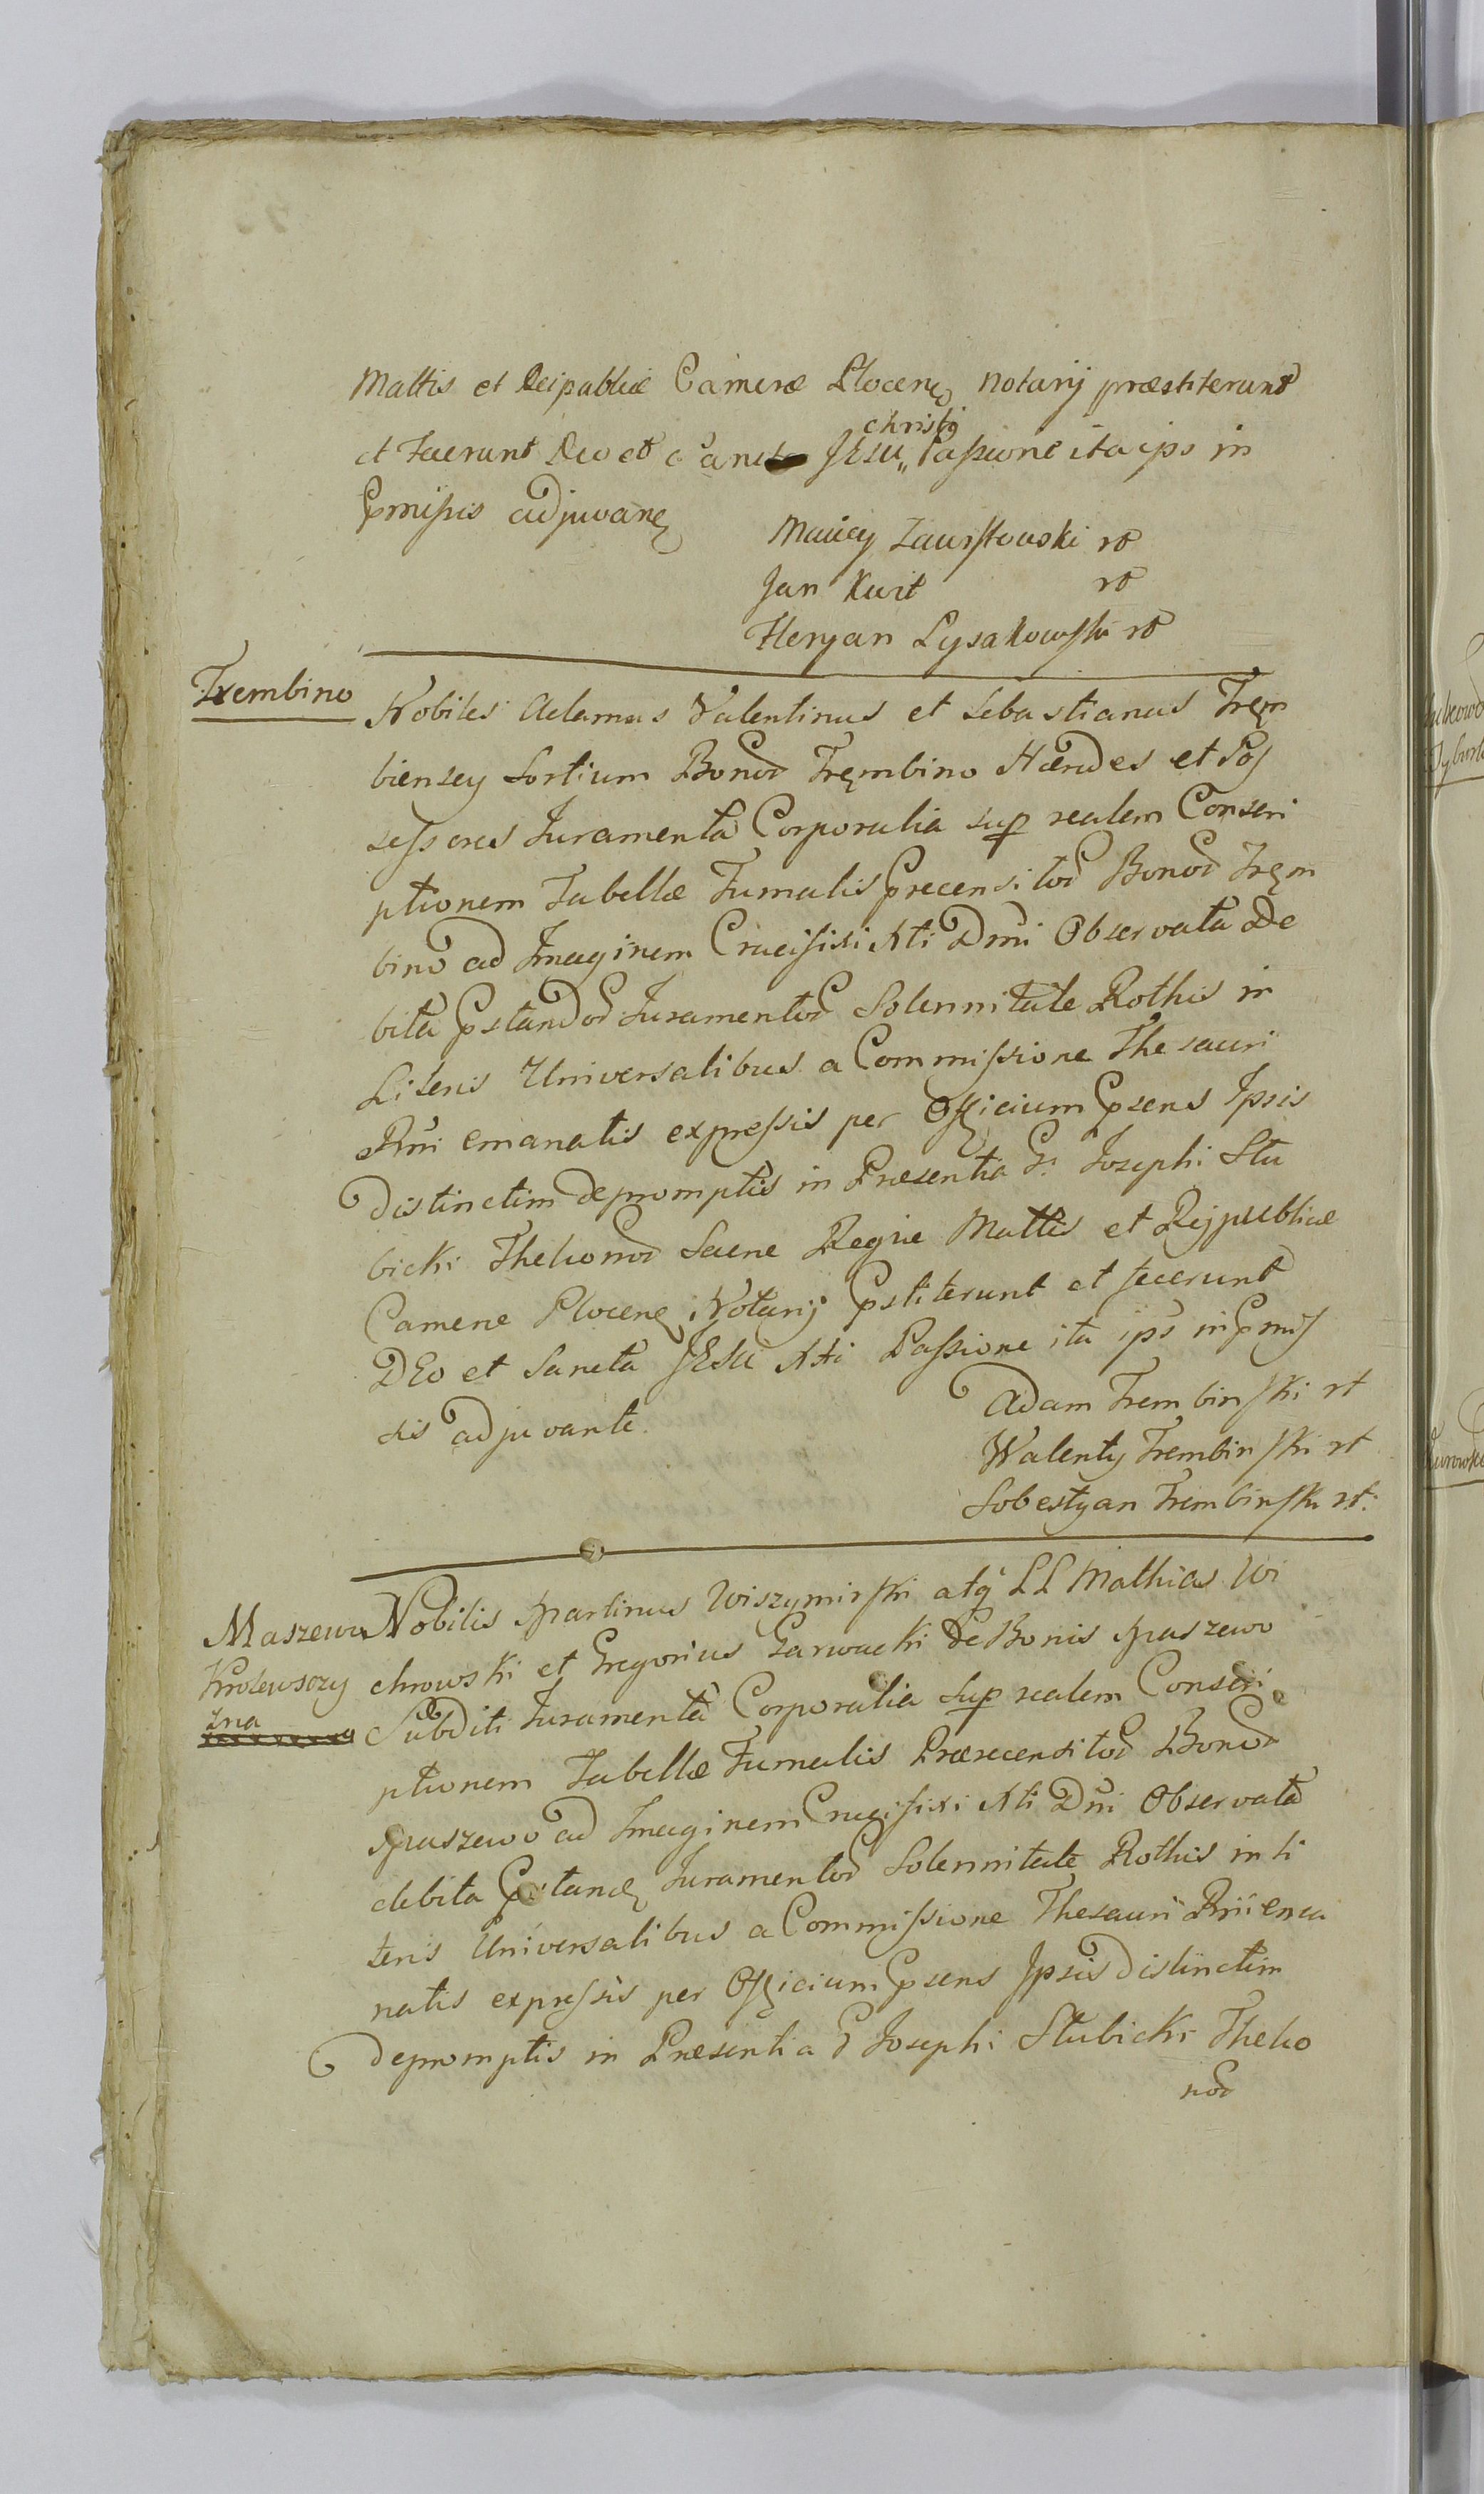 Mattis et Reipublicæ Cameræ Plocens notarij præstiterunt
christi
et Facrunt Deo et Sancta JESU„ Passione ita ips in
Pmissis adjuvane
Maciey Zawistowski rt
Jan Kwit rt
Floryan Lysakowski rt
Trembino
Nobiles Adamus Valentinus et Sebastianus Tręm
bienscy Sortium Bonor Tręmbino Hæredes et Pos
sessores Juramenta Corporalia sup realem Conscri
ptionem Tabellæ Fumalis Precensitor Bonor Tręm
bino ad Imaginem Crucifixi Xti Dmi Observata De
bita Pstandor Juramentor Solennitate Rothis in
Literis Universalibus a Commissione Thesauri
Rni emanatis expressis per Officium Psens Ipsis
Distinctim depromptis in Præsentia G: Josephi Stu
bicki Thelionor Sacræ Regiæ Mattis et Reijpublicæ
Cameræ Plocens Notarij Pstiterunt et fecerunt
DEo et Sancta JESU Xti Passione ita ips in Pmis
sis adjuvante.
Adam Trembinski rt
Walenty Trembinski rt
Sobestyan Trembinski rt:
Maszewo
Krolewszczy
zna
Nobilis Martinus Wiszymirski atq LL Mathias Wi
chrowski et Gregorius Garwacki de Bonis Maszewo
Subditi Juramenta Corporalia Sup realem Conscri
ptionem Tabellæ Fumalis Præcensitor Bonor
Maszewo ad Imaginem Crucifixi Xti Dni Observata
debita Pstand Juramentor Solennitate Rothis in Li
teris Universalibus a Commissione Thesauri Rni ema
natis expressis per Officium Psens Ipsis distinctim
depromptis in Præsentia G Josephi Stubicki Thelio
nor